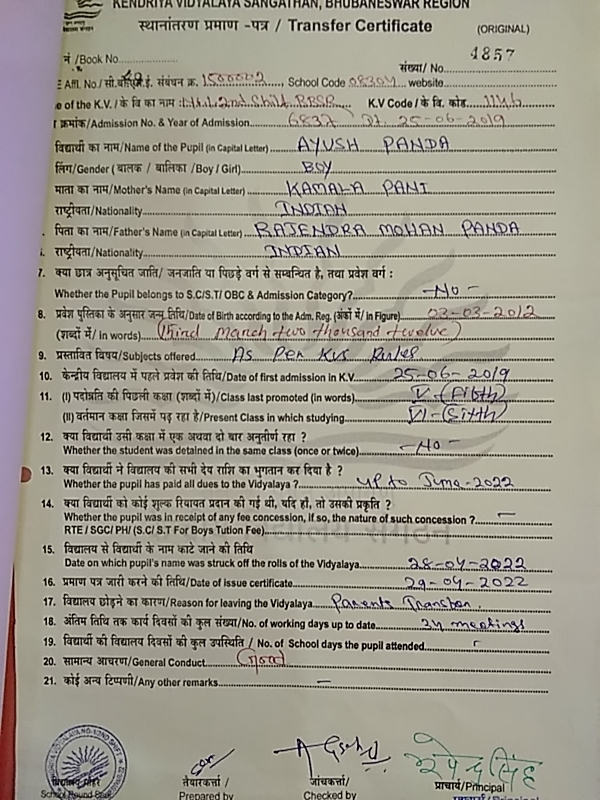 KENDRIYA VIDYALAYA SANGATHAN, BHUBANESWAR REGION
स्थानांतरण प्रमाण -पत्र / Transfer Certificate
(ORIGINAL)
नं /Book No.
संख्या/ No. 4857
Affl. No./ सी.बी.एस.ई. संबंधन क्र. 1500002, School Code 08304 website
e of the K.V. / के वि का नाम : No.1, 2nd Shift, BBSR K.V Code / के वि. कोड 1146
क्रमांक/Admission No. & Year of Admission 6837 Dt. 25-06-2019
विद्यार्थी का नाम/Name of the Pupil (in Capital Letter) AYUSH PANDA
लिंग/Gender ( बालक / बालिका /Boy / Girl) BOY
माता का नाम/Mother's Name (in Capital Letter) KAMALA PANI
राष्ट्रीयता/Nationality INDIAN
पिता का नाम/Father's Name (in Capital Letter) RAJENDRA MOHAN PANDA
राष्ट्रीयता/Nationality INDIAN
7. क्या छात्र अनुसूचित जाति/ जनजाति या पिछड़े वर्ग से सम्बन्धित है, तथा प्रवेश वर्ग :
Whether the Pupil belongs to S.C/S.T/ OBC & Admission Category? -No-
8. प्रवेश पुस्तिका के अनुसार जन्म तिथि/Date of Birth according to the Adm. Reg. (अंकों में/ in Figure) 03-03-2012
(शब्दों में/ in words) (third march two thousand twelve)
9. प्रस्तावित विषय/Subjects offered As Per KVS Rules
10. केन्द्रीय विद्यालय में पहले प्रवेश की तिथि/Date of first admission in K.V. 25-06-2019
11. (I) पदोन्नति की पिछली कक्षा (शब्दों में)/Class last promoted (in words) V-(Fifth)
(II) वर्तमान कक्षा जिसमें पढ़ रहा है/Present Class in which studying VI-(Sixth)
12. क्या विद्यार्थी उसी कक्षा में एक अथवा दो बार अनुतीर्ण रहा ?
Whether the student was detained in the same class (once or twice) -No-
13. क्या विद्यार्थी ने विद्यालय की सभी देय राशि का भुगतान कर दिया है ?
Whether the pupil has paid all dues to the Vidyalaya ? up to June-2022
14. क्या विद्यार्थी को कोई शुल्क रियायत प्रदान की गई थी, यदि हाँ, तो उसकी प्रकृति ?
Whether the pupil was in receipt of any fee concession, if so, the nature of such concession ? -
RTE / SGC/ PH/ (S.C/ S.T For Boys Tution Fee)
15. विद्यालय से विद्यार्थी के नाम काटे जाने की तिथि
Date on which pupil's name was struck off the rolls of the Vidyalaya 28-04-2022
16. प्रमाण पत्र जारी करने की तिथि/Date of issue certificate 29-04-2022
17. विद्यालय छोड़ने का कारण/Reason for leaving the Vidyalaya Parents Transfer.
18. अंतिम तिथि तक कार्य दिवसों की कुल संख्या/No. of working days up to date 24 meetings
19. विद्यार्थी की विद्यालय दिवसों की कुल उपस्थिति / No. of School days the pupil attended
20. सामान्य आचरण/General Conduct (Good
21. कोई अन्य टिप्पणी/Any other remarks -
School Round Seal
तैयारकर्त्ता /
Prepared by
जांचकर्त्ता/
Checked by
प्राचार्य/Principal